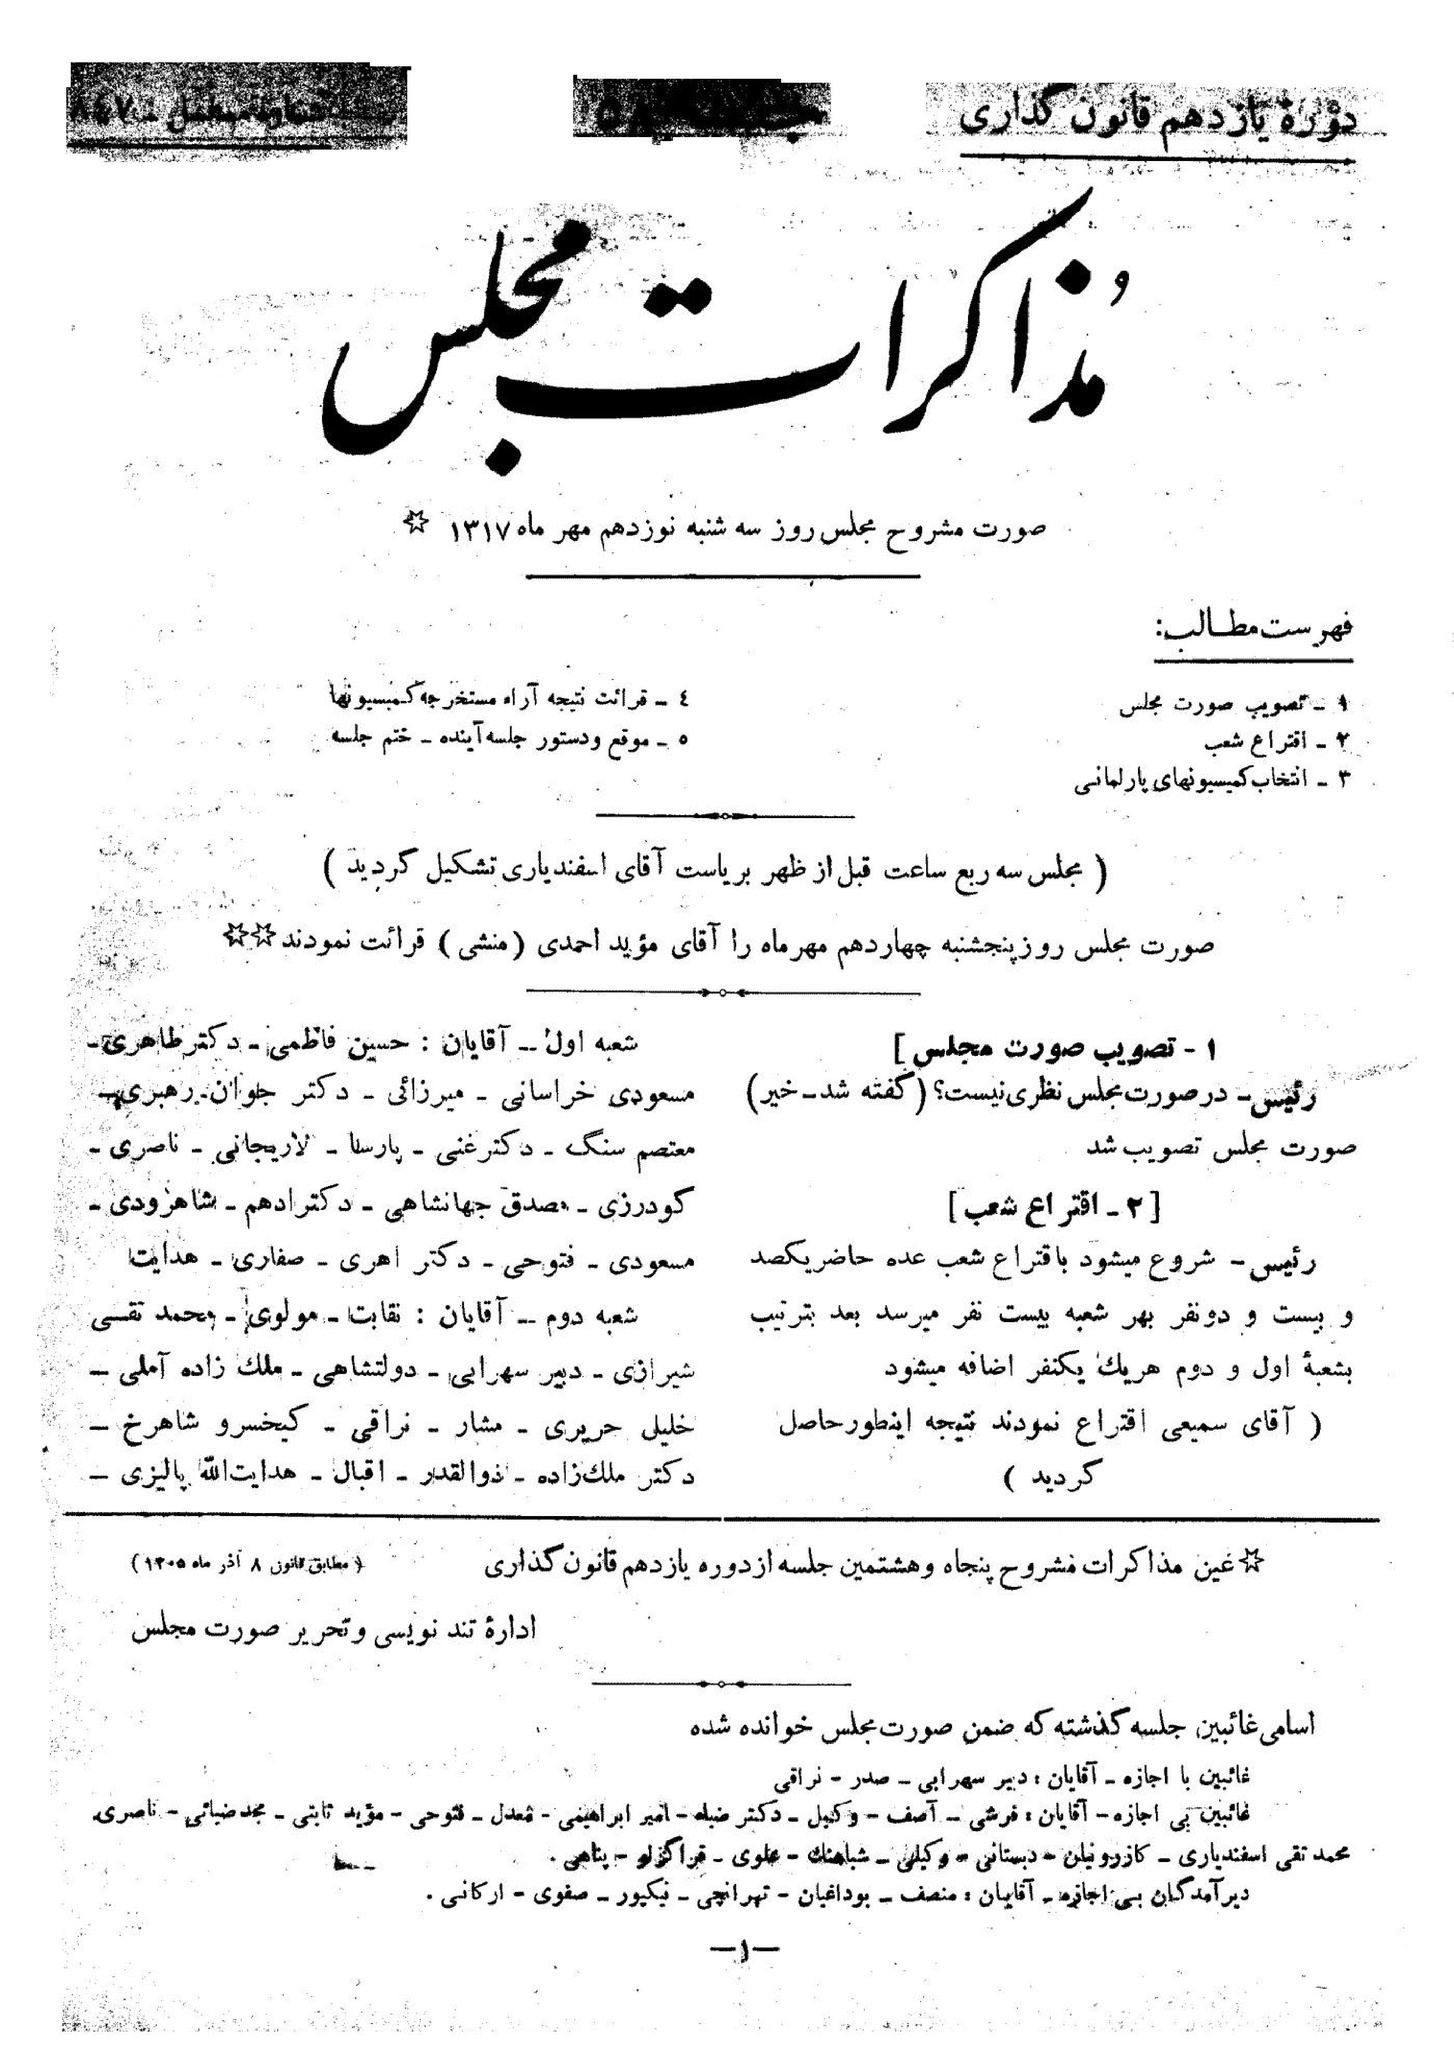 دورهٔ یازدهم قانون گذاری
جلسه ۵۸
شماره مسلسل - ۸٤۷
مُذاکرات مجلس
صورت مشروح مجلس روز سه شنبه نوزدهم مهر ماه ۱۳۱۷ ☆
فهرست مطالب:
۱ - تصویب صورت مجلس
۲ - اقتراع شعب
۳ - انتخاب کمیسیونهای پارلمانی
٤ - قرائت نتیجه آراء مستخرجه کمیسیونها
۵ - موقع و دستور جلسه آینده - ختم جلسه
( مجلس سه ربع ساعت قبل از ظهر بریاست آقای اسفندیاری تشکیل گردید )
صورت مجلس روز پنجشنبه چهاردهم مهرماه را آقای مؤید احمدی (منشی) قرائت نمودند ☆☆
۱ - تصویب صورت مجلس ]
رئیس - در صورت مجلس نظری نیست؟ (گفته شد - خیر)
صورت مجلس تصویب شد
[ ۲ - اقتراع شعب ]
رئیس - شروع میشود باقتراع شعب عده حاضر یکصد
و بیست و دونفر بهر شعبه بیست نفر میرسد بعد بترتیب
بشعبهٔ اول و دوم هریك یکنفر اضافه میشود
( آقای سمیعی اقتراع نمودند نتیجه اینطور حاصل
گردید )
شعبه اول - آقایان : حسین فاطمی - دکتر طاهری -
مسعودی خراسانی - میرزائی - دکتر جوان - رهبری -
معتصم سنگ - دکتر غنی - پارسا - لاریجانی - ناصری -
گودرزی - مصدق جهانشاهی - دکتر ادهم - شاهرودی -
مسعودی - فتوحی - دکتر اهری - صفاری - هدایت
شعبه دوم - آقایان : نقابت - مولوی - محمد تقی
شیرازی - دبیر سهرابی - دولتشاهی - ملك زاده آملی -
خلیل حریری - مشار - نراقی - کیخسرو شاهرخ -
دکتر ملك زاده - ذوالقدر - اقبال - هدایت الله پالیزی -
☆ عین مذاکرات مشروح پنجاه و هشتمین جلسه از دوره یازدهم قانون گذاری
( مطابق قانون ۸ آذر ماه ۱۳۰۵ )
ادارهٔ تند نویسی و تحریر صورت مجلس
اسامی غائبین جلسه گذشته که ضمن صورت مجلس خوانده شده
غائبین با اجازه - آقایان : دبیر سهرابی - صدر - نراقی
غائبین بی اجازه - آقایان : فرشی - آصف - وکیل - دکتر ضیاء - امیر ابراهیمی - معدل - فتوحی - مؤید ثابتی - مجد ضیائی - ناصری
محمد تقی اسفندیاری - کازرونیان - دبستانی - وکیلی - شباهنك - علوی - قراگزلو - پناهی .
دیر آمدگان بی اجازه - آقایان : منصف - بوداغیان - تهرانچی - نیکپور - صفوی - ارکانی .
—۱—